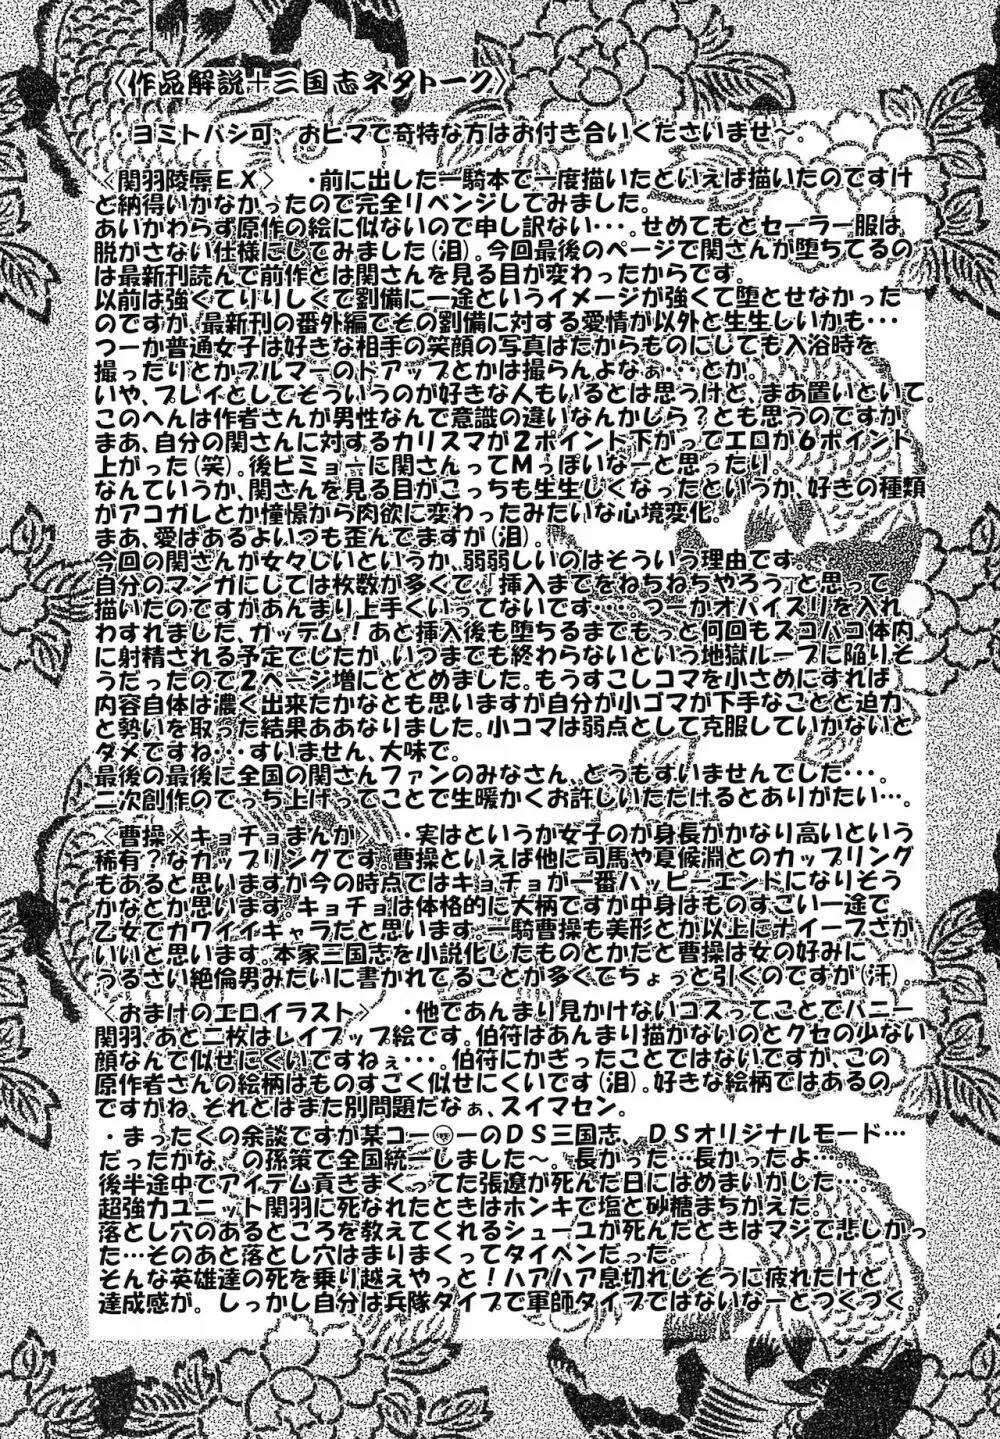 〈作品解説＋三国志ネタトーク〉
・ヨミトバシ可、おヒマで奇特な方はお付き合いくださいませ～。
〈関羽陵辱ＥＸ〉　・前に出した一騎本で一度描いたといえば描いたのですけ
ど納得いかなかったので完全リベンジしてみました。
あいかわらず原作の絵に似ないので申し訳ない・・・。せめてもとセーラー服は
脱がさない仕様にしてみました（泪）。今回最後のページで関さんが堕ちてるの
は最新刊読んで前作とは関さんを見る目が変わったからです。
以前は強くてりりしくで劉備に一途というイメージが強くて堕とせなかった
のですが、最新刊の番外編でその劉備に対する愛情が以外と生生しいかも・・・
つーか普通女子は好きな相手の笑顔の写真はたからものにしても入浴時を
撮ったりとかブルマーのドアップとかは撮らんよなぁ・・・とか。
いや、プレイとしてそういうのが好きな人もいるとは思うけど、まあ置いといて。
このへんは作者さんが男性なんで意識の違いなんかしら？とも思うのですが
まあ、自分の関さんに対するカリスマが２ポイント下がってエロが６ポイント
上がった（笑）。後ビミョーに関さんってＭっぽいなーと思ったり。
なんていうか、関さんを見る目がこっちも生生しくなったというか、好きの種類
がアコガレとか憧憬から肉欲に変わったみたいな心境変化。
まあ、愛はあるよいつも歪んでますが（泪）。
今回の関さんが女々しいというか、弱弱しいのはそういう理由です。
自分のマンガにしては枚数が多くて、「挿入までをねちねちやろう」と思って
描いたのですがあんまり上手くいってないです・・・。つーかオパイズリを入れ
わすれました、ガッデム！あと挿入後も堕ちるまでもっと何回もズコバコ体内
に射精される予定でしたが、いつまでも終わらないという地獄ループに陥りそ
うだったので２ページ増にとどめました。もうすこしコマを小さめにすれば
内容自体は濃く出来たかなとも思いますが自分が小ゴマが下手なことと迫力
と勢いを取った結果ああなりました。小コマは弱点として克服していかないと
ダメですね・・・すいません、大味で。
最後の最後に全国の関さんファンのみなさん、どうもすいませんでした・・・。
二次創作のでっち上げってことで生暖かくお許しいただけるとありがたい…。
〈曹操×キョチョまんが〉　・実はというか女子のが身長がかなり高いという
稀有？なカップリングです。曹操といえば他に司馬や夏候淵とのカップリング
もあると思いますが今の時点ではキョチョが一番ハッピーエンドになりそう
かなとか思います。キョチョは体格的に大柄ですが中身はものすごい一途で
乙女でカワイイキャラだと思います。一騎曹操も美形とか以上にナイーブさが
いいと思います。本家三国志を小説化したものとかだと曹操は女の好みに
うるさい絶倫男みたいに書かれてることが多くてちょっと引くのですが（汗）。
〈おまけのエロイラスト〉　・他であんまり見かけないコスってことでバニー
関羽、あと二枚はレイプップ絵です。伯符はあんまり描かないのとクセの少ない
顔なんで似せにくいですねぇ・・・・。伯符にかぎったことではないですが、この
原作者さんの絵柄はものすごく似せにくいです（泪）。好きな絵柄ではあるの
ですがね、それとはまた別問題だなぁ、スイマセン。
・まったくの余談ですが某コーーのＤＳ三国志、ＤＳオリジナルモード…
だったかな、の孫策で全国統一しました～。長かった…長かったよ…。
後半途中でアイテム貢ぎまくってた張遼が死んだ日にはめまいがした…。
超強力ユニット関羽に死なれたときはホンキで塩と砂糖まちがえた。
落とし穴のあるところを教えてくれるシューユが死んだときはマジで悲しかっ
た…そのあと落とし穴はまりまくってタイヘンだった。
そんな英雄達の死を乗り越えやっと！ハアハア息切れしそうに疲れたけど、
達成感が。しっかし自分は兵隊タイプで軍師タイプではないなーとつくづく。